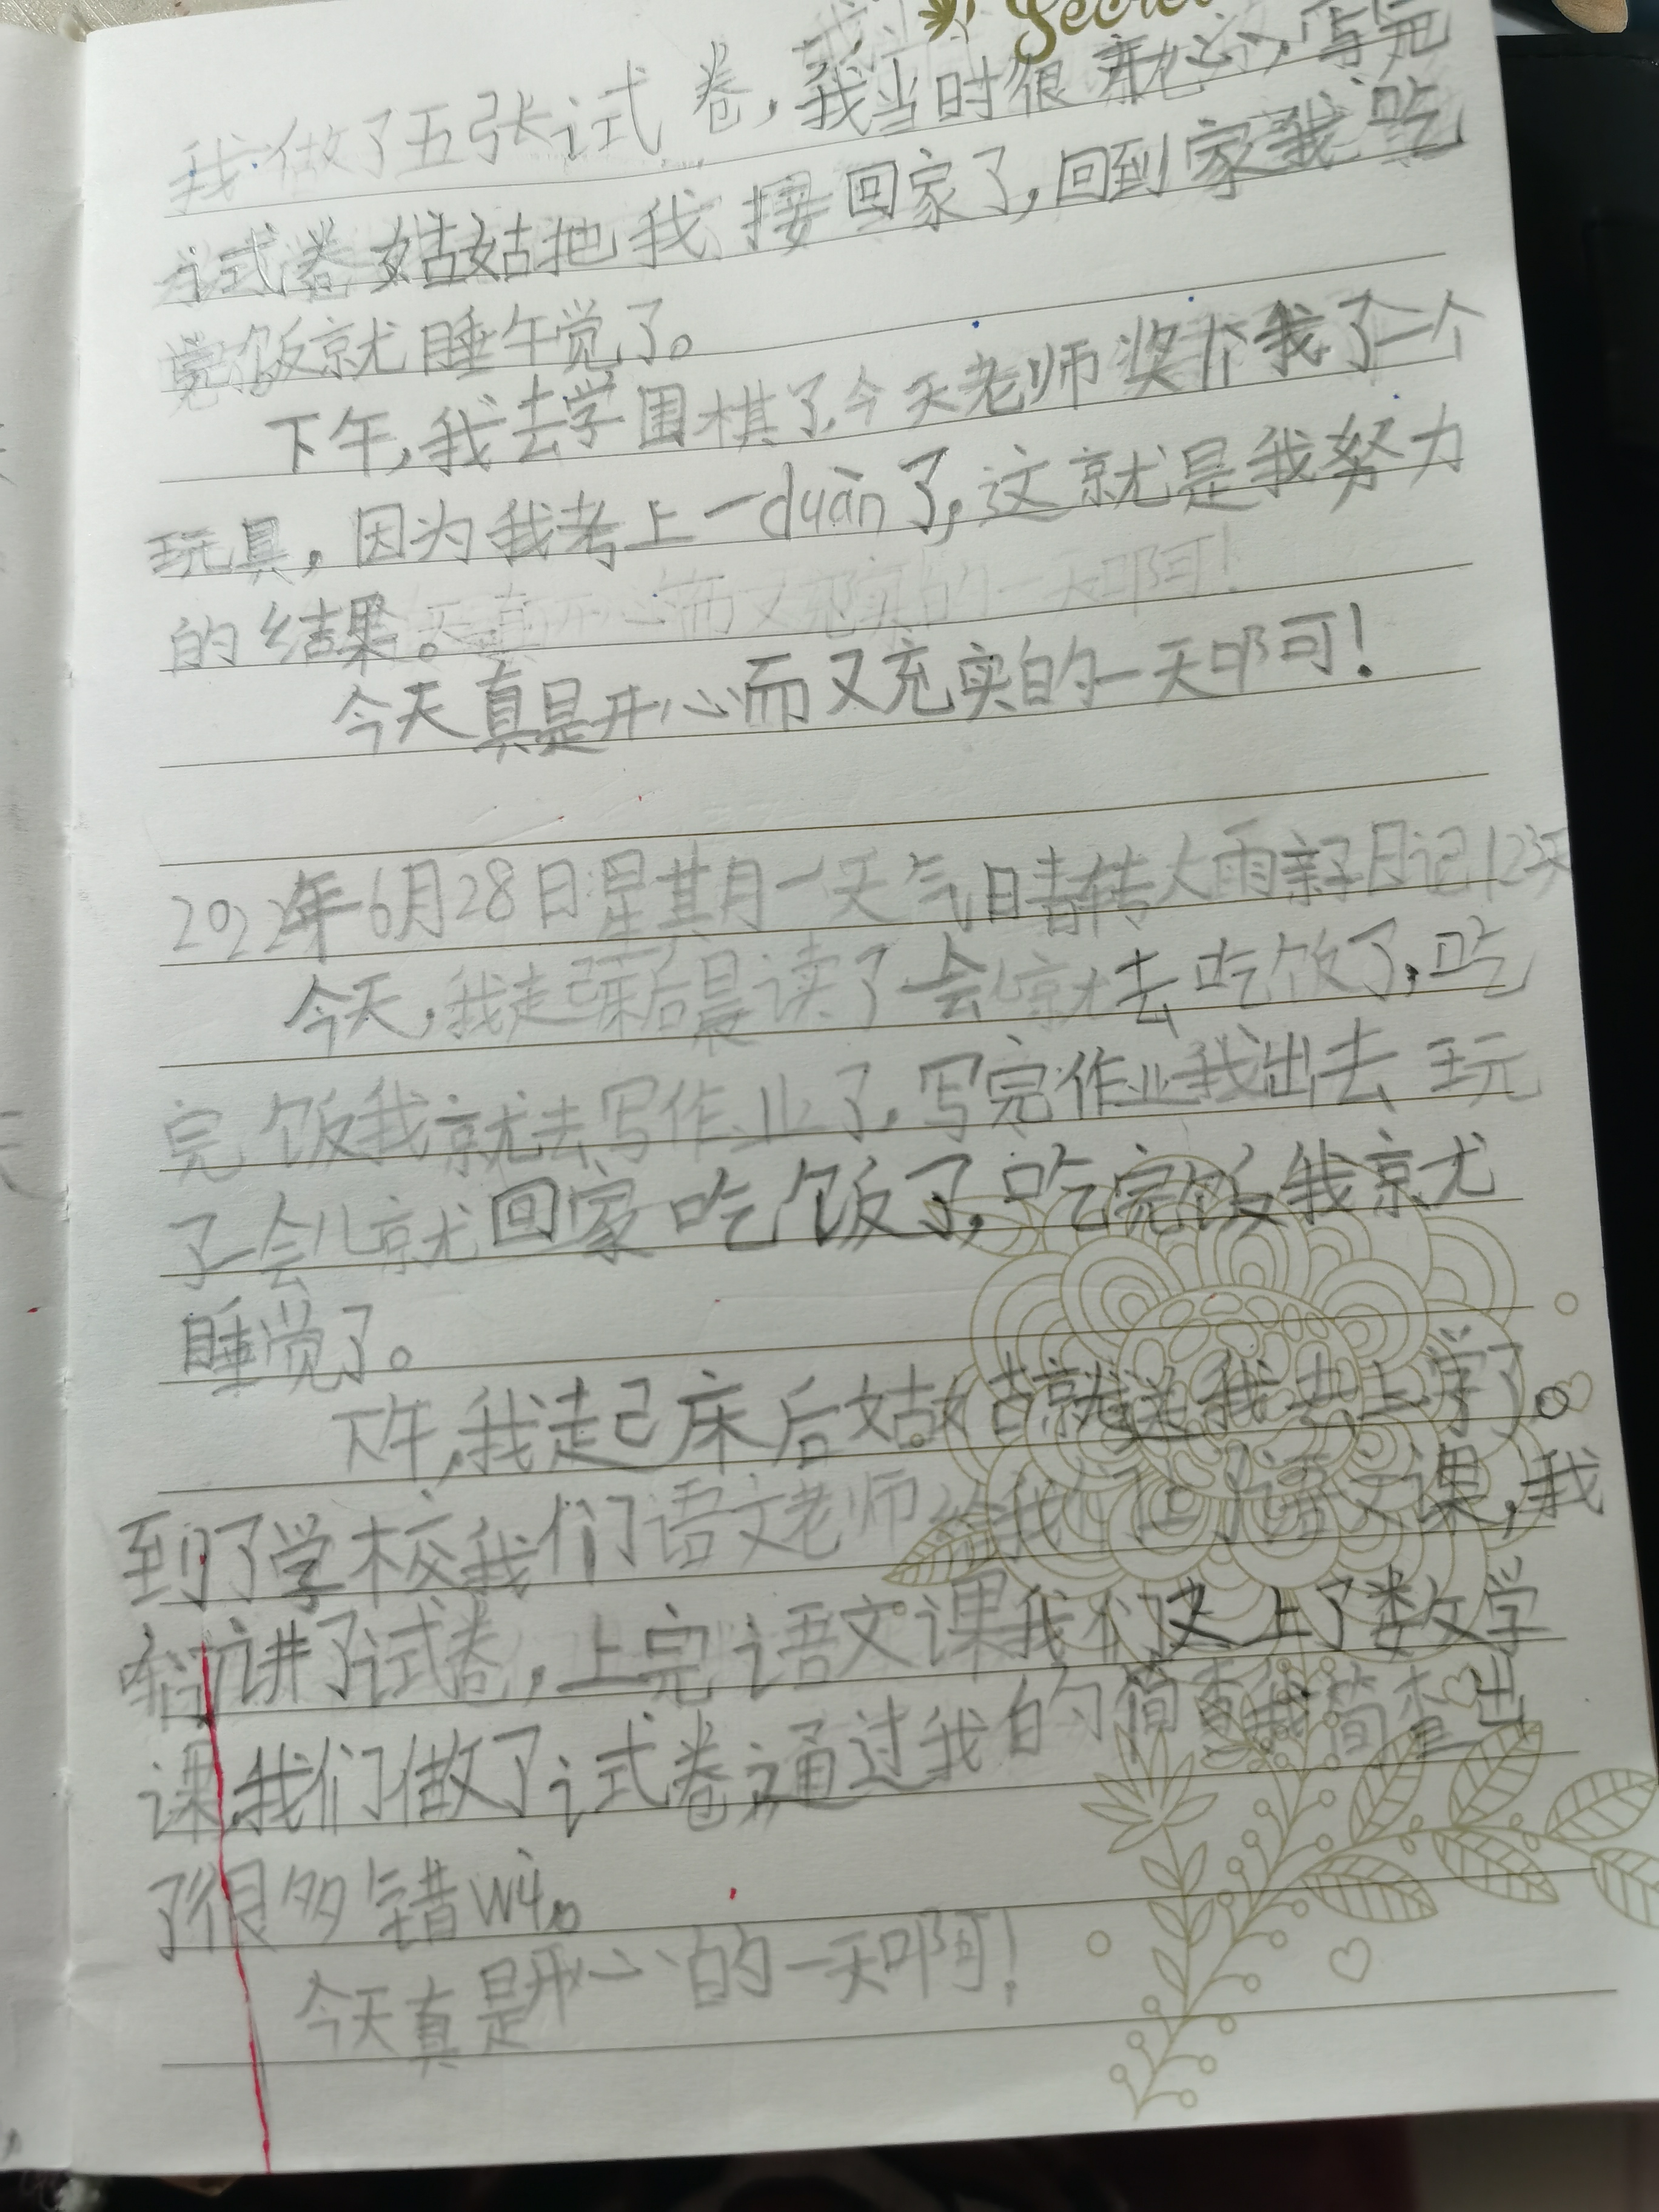 Secre
我做了五张试卷,我当时很开心,写完
试卷姑姑把我接回家了,回到家我吃
完饭就睡午觉了。
下午,我去学围棋了,今天老师奖个我了一个
玩具,因为我考上一duàn了,这就是我努力
的结果。
今天真是开心而又充实的一天啊!
2022年6月28日星其月一天气晴转大雨亲子日记12天
今天,我起床后晨读了一会儿就去吃饭了,吃
完饭我就去写作业了,写完作业我出去玩
了一会儿就回家吃饭了,吃完饭我就
睡觉了。
下午,我起床后姑姑就送我去上学了。
到了学校我们语文老师给我们上了语文课,我
们讲了试卷,上完语文课我们又上了数学
课,我们做了试卷通过我的简查我简查出
了很多错wù。
今天真是开心的一天啊!